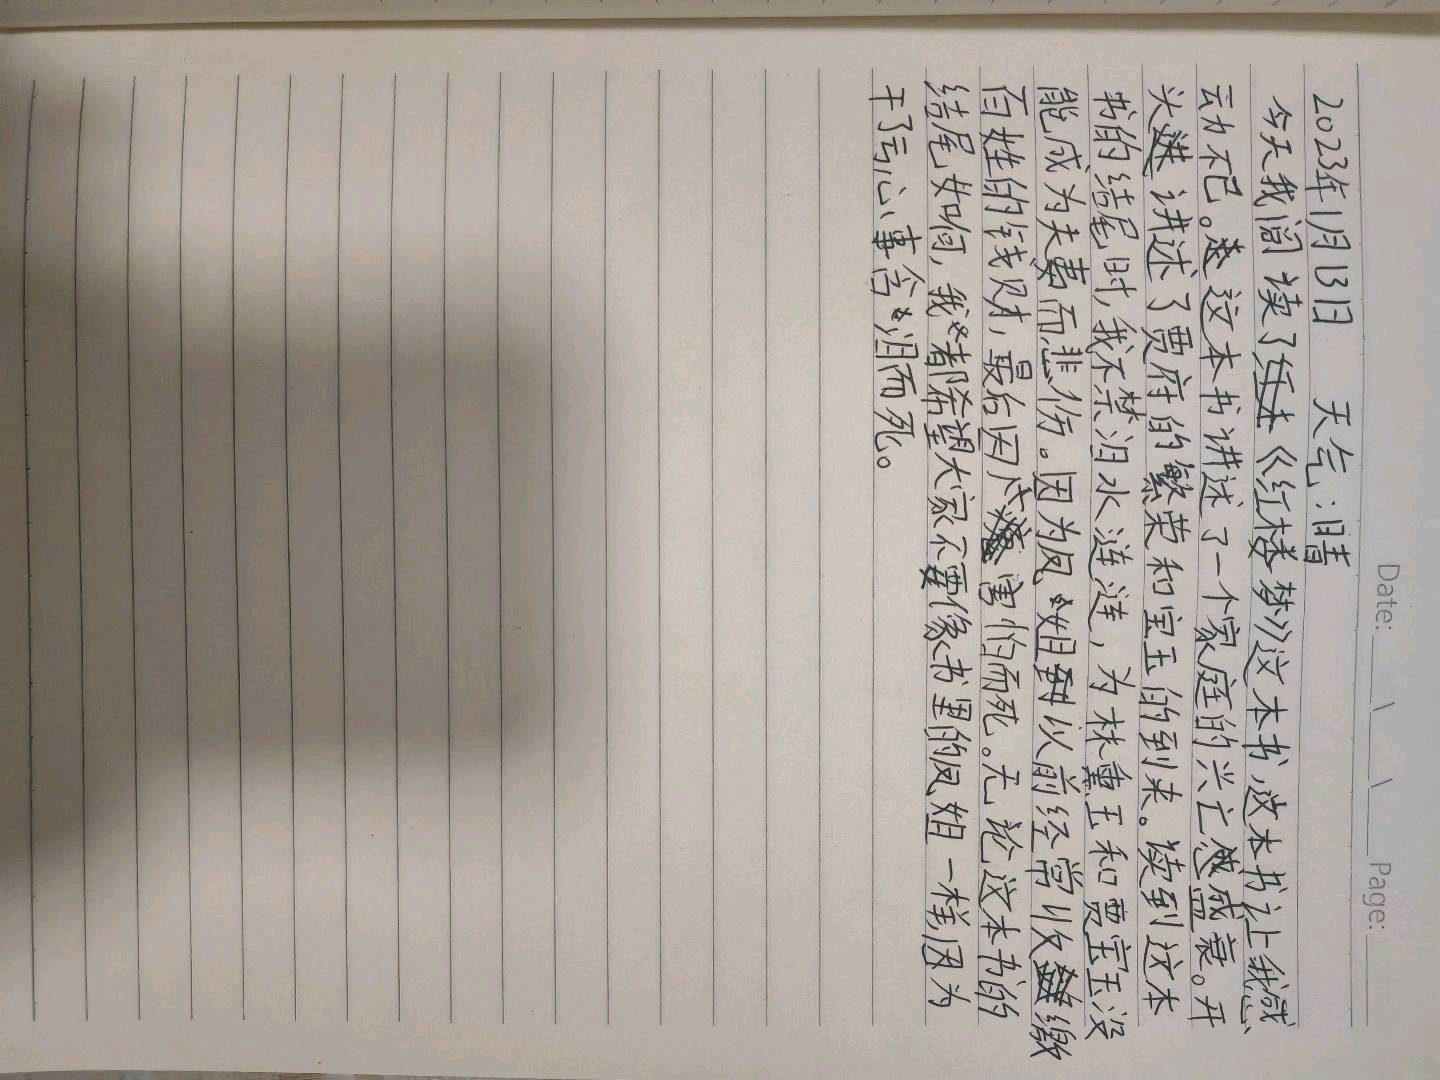 Date: \ \ Page:
2023年1月13日 天气:晴
今天我阅读了《红楼梦》这本书,这本书让我感
动不已。这本书讲述了一个家庭的兴亡盛衰。开
头讲述了贾府的繁荣和宝玉的到来。读到这本
书的结尾时,我不禁泪水涟涟,为林黛玉和贾宝玉没
能成为夫妻而悲伤。因为凤姐以前经常收缴
百姓的钱财,最后因害怕而死。无论这本书的
结尾如何,我都希望大家不要像书里的凤姐一样因为
干了亏心事含泪而死。